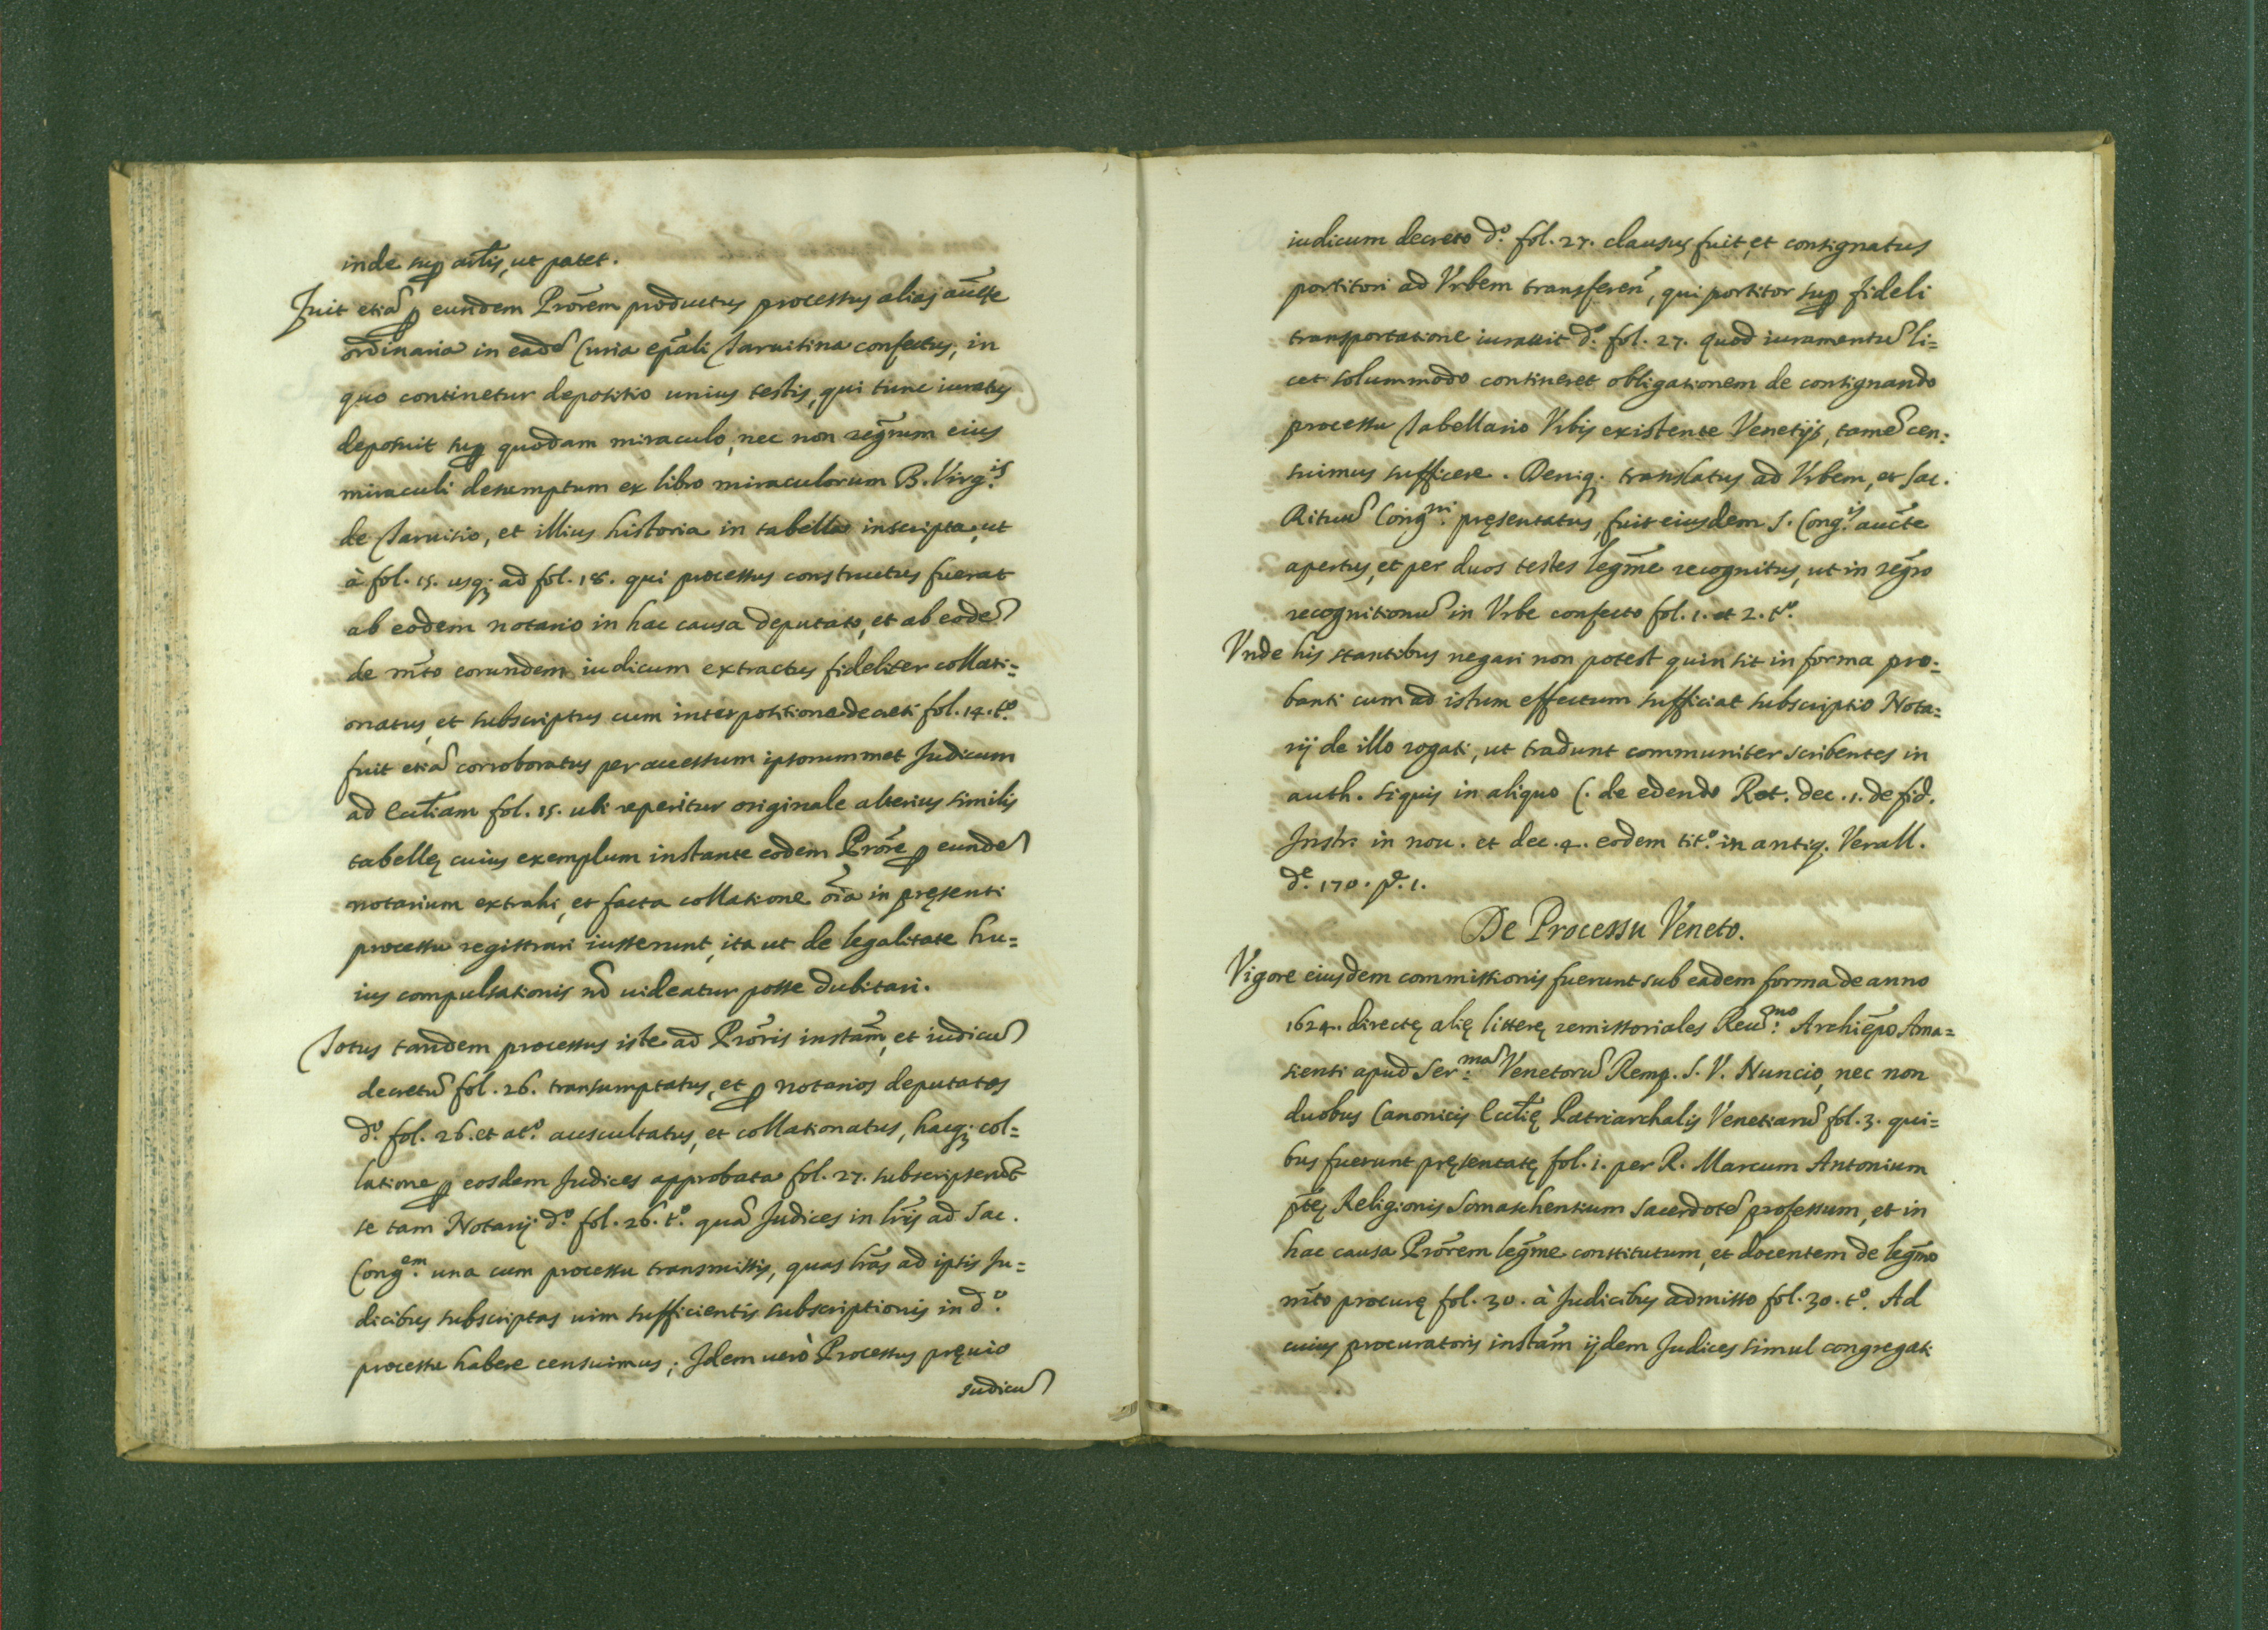 inde sup artis, ut patet.
Fuit etiã p eundem Prõrem productus processus alias aũcte
ordinaria in eadẽ Curia epãli Taruisina confectus, in
quo continetur depositio unius testis, qui tunc iuratus
deposuit sup quodam miraculo, nec non regrum eius
miraculi desumptum ex libro miraculorum B. Virg.is
de Taruisio, et illius historia in tabella inscripta, ut
à fol. 15. usq; ad fol. 18. qui processus constructus fuerat
ab eodem notario in hac causa deputato, et ab eodẽ
de mto eorundem iudicum extractus fideliter collati=
onatus, et subscriptus cum interpositione decreti fol. 14. t.o
fuit etiã corroboratus per accessum ipsorummet Judicum
ad Ecctiam fol. 15. ubi reperitur originale alterius similis
tabellę cuius exemplum instante eodem Prõre p eundẽ
notarium extrahi, et facta collatione oĩa in pręsenti
processu registrari iusserunt, ita ut de legalitate hu=
ius compulsationis nõ uideatur posse dubitari.
Totus tandem processus iste ad Prõris instãm, et iudicũ
decretũ fol. 26. transumptatus, et p notarios deputatos
d.o fol. 26. et at.o auscultatus, et collationatus, hacq; col=
latione p eosdem Judices approbata fol. 27. subscripserũt
se tam Notarij d.o fol. 26. t.o quã Judices in lris ad Sac.
Cong.em una cum processu transmissis, quas lrãs ad ipsis Ju=
dicibus subscriptas uim sufficientis subscriptionis in d.o
processu habere censuimus; Idem uerò Processus pręuio
Iudicũ
iudicum decreto d.o fol. 27. clausus fuit, et consignatus
portitori ad Vrbem transferen̄, qui portitor sup fideli
transportatione iurauit d.o fol. 27. quod iuramentũ li=
cet solummodo contineret obligationem de consignando
processu Tabellario Vrbis existente Venetijs, tamẽ cen:
suimus sufficere. Deniq; translatus ad Vrbem, et Sac.
Rituũ Cong.ni pręsentatus, fuit eiusdem S. Cong.is aũcte
apertus, et per duos testes legme recognitus, ut in regro
recognitionũ in Vrbe confecto fol. 1. et 2. t.o
Vnde his stantibus negari non potest quin sit in forma pro=
banti cum ad istum effectum sufficiat subscriptio Nota=
rij de illo rogati, ut tradunt communiter scribentes in
auth. siquis in aliquo C. de edendo Rot. dec. 1. de fid.
Instr. in nou. et dec. 4. eodem tit.o in antiq. Verall.
d.e 170. p. 1.
De Processu Veneto.
Vigore eiusdem commissionis fuerunt sub eadem forma de anno
1624. directę alię litterę remissoriales Reu.mo Archiẽpo Ama=
sienti apud Ser.mã Venetorũ Remp. S. V. Nuncio, nec non
duobus Canonicis Ecctię Patriarchalis Venetiarũ fol. 3. qui=
bus fuerunt pręsentatę fol. 1. per R. Marcum Antonium
ptę Religionis Somaschensium Sacerdotẽ professum, et in
hac causa Prõrem legme constitutum, et docentem de legmo
mto procurę fol. 30. à Judicibus admisso fol. 30. t.o Ad
cuius procuratoris instãm ijdem Judices simul congregati